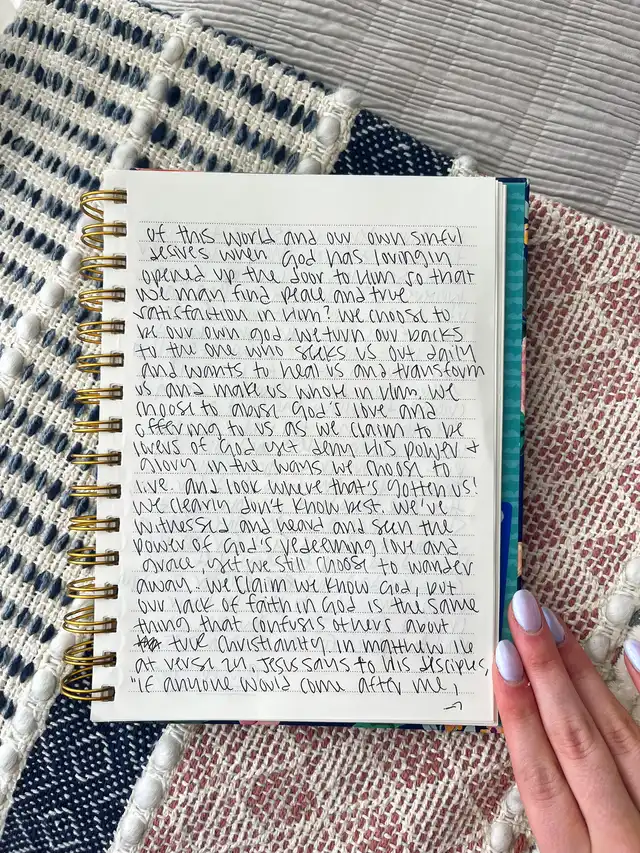 of this world and our own sinful
desires when God has lovingly
opened up the door to Him so that
we may find peace and true
satisfaction in Him? We choose to
be our own god. We turn our backs
to the one who seeks us out daily
and wants to heal us and transform
us and make us whole in Him. We
choose to abuse God's love and
offering to us as we claim to be
lovers of God yet deny His power +
glory in the ways we choose to
live. And look where that's gotten us!
We clearly don't know best. We've
witnessed and heard and seen the
power of God's redeeming love and
grace, yet we still choose to wander
away. We claim we know God, but
our lack of faith in God is the same
thing that confuses others about
true Christianity. In Matthew 16
at verse 24, Jesus says to His disciples,
"If anyone would come after me,